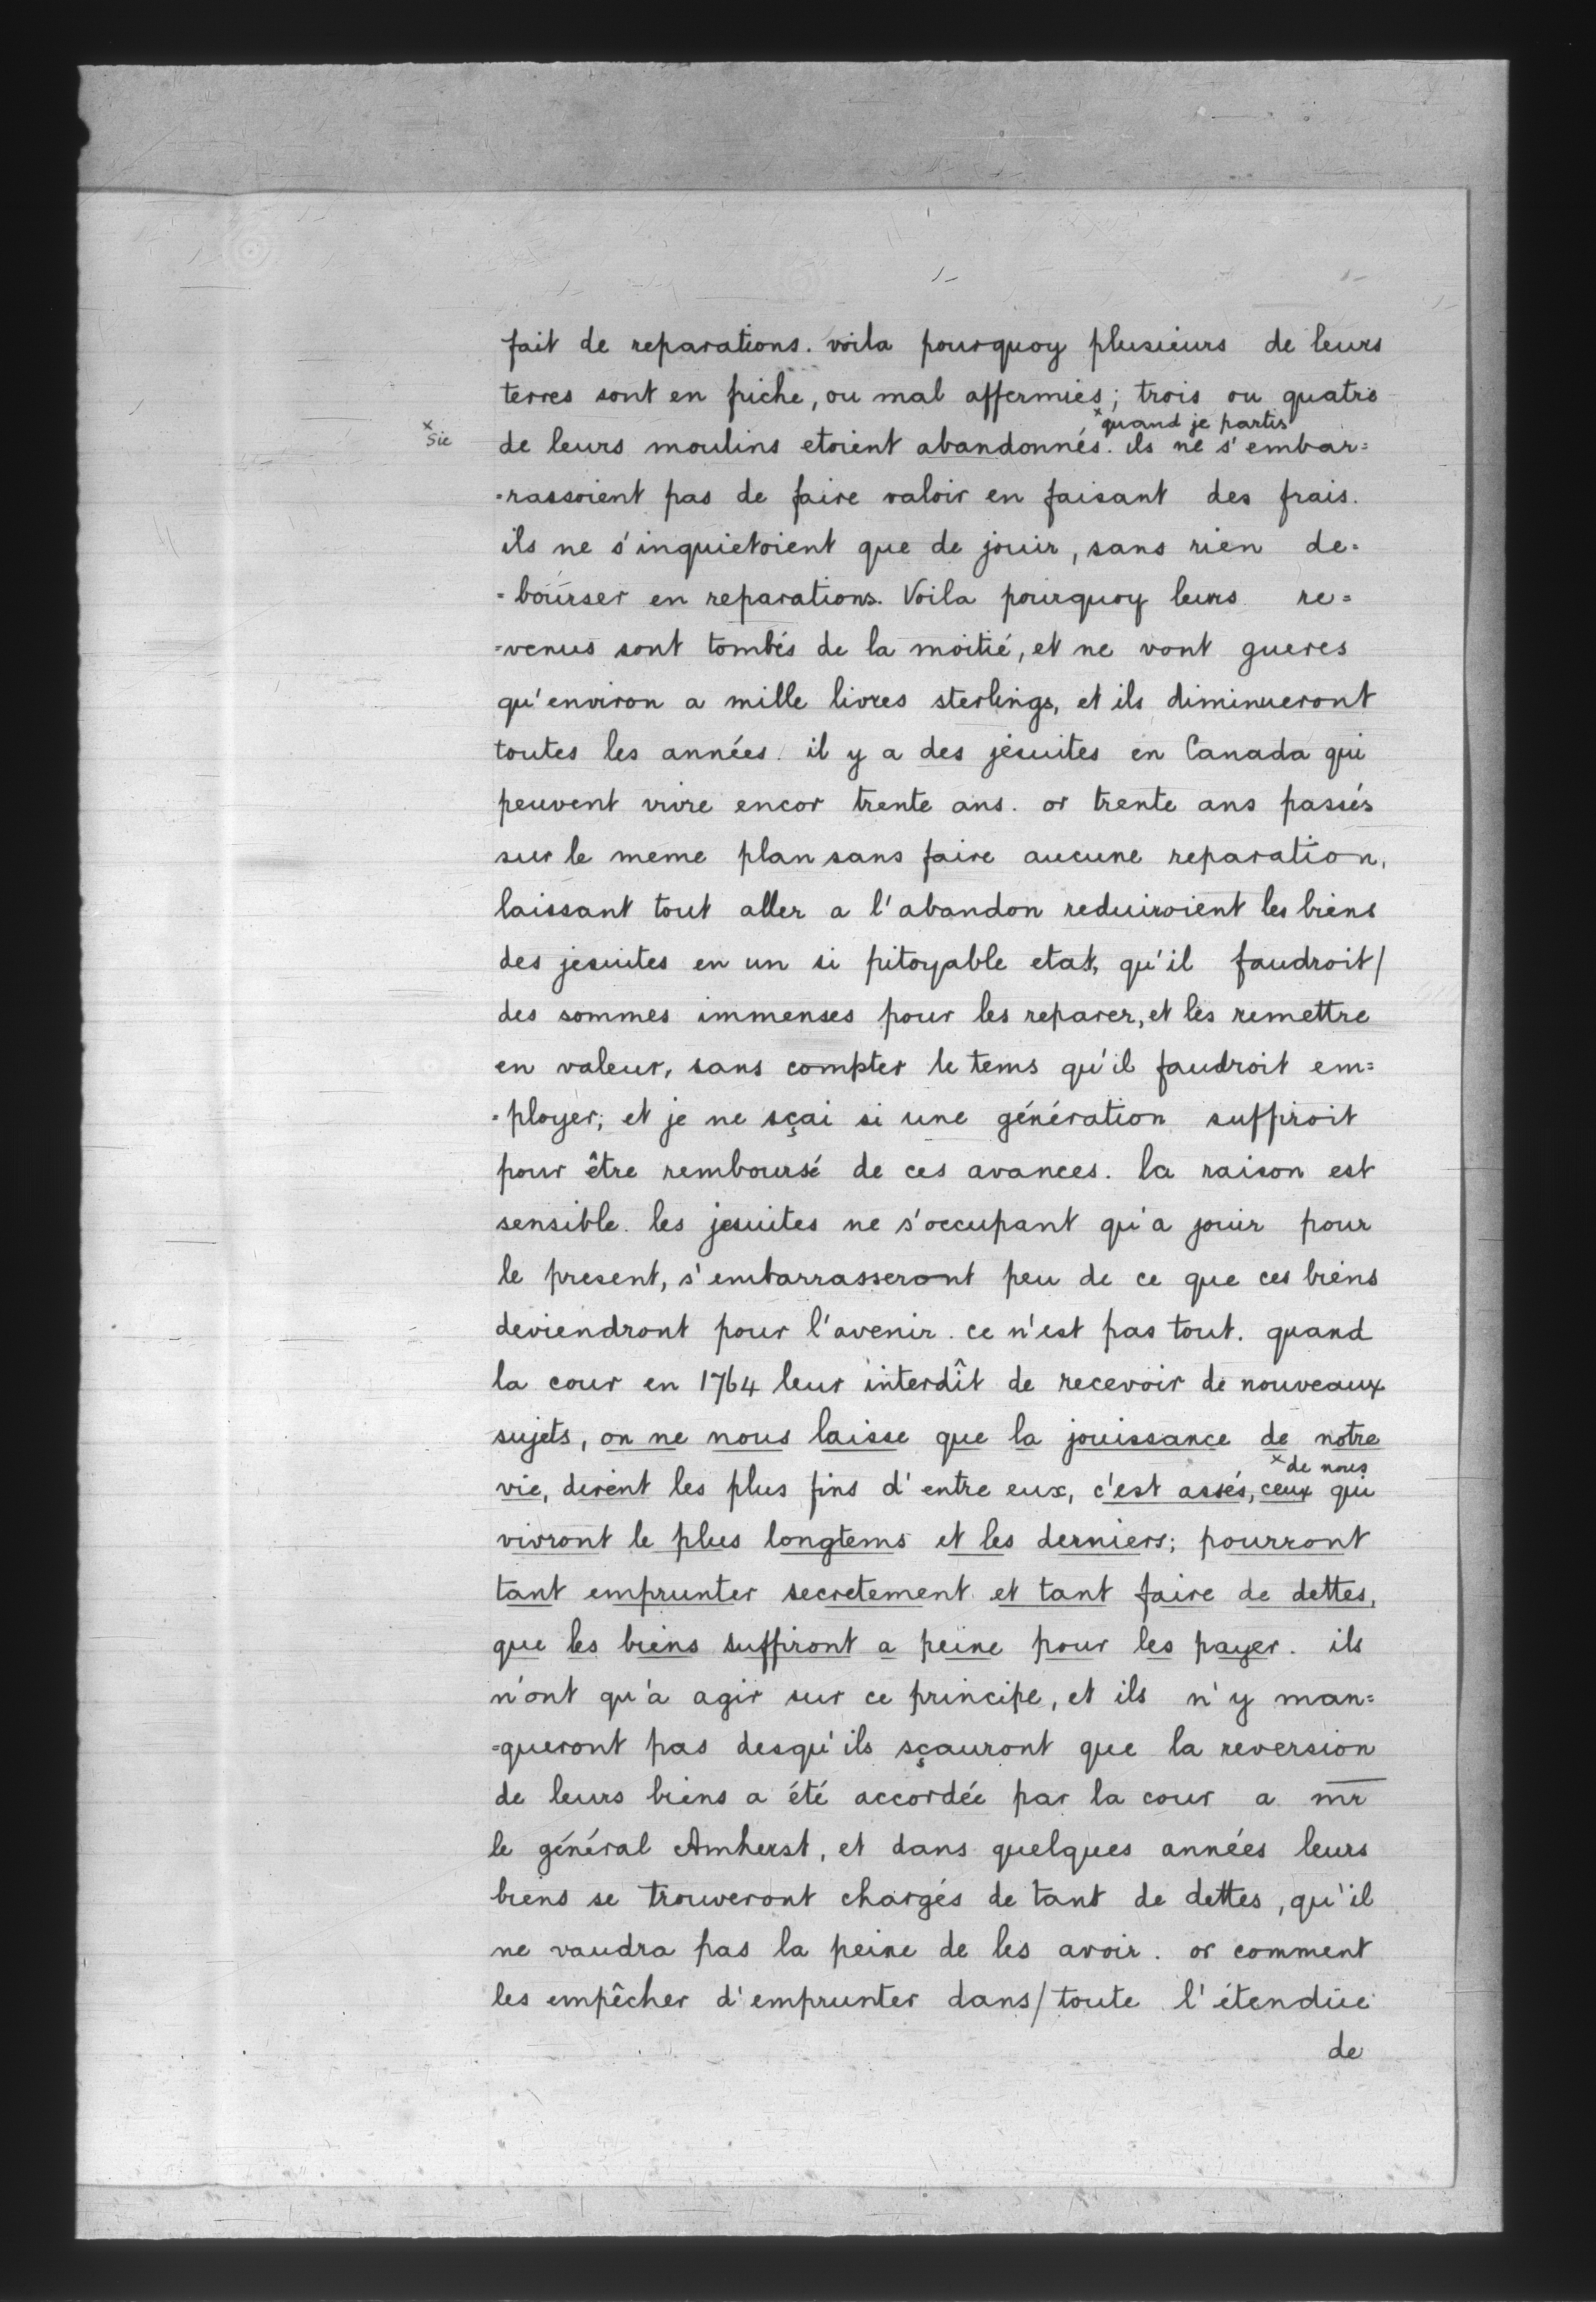 fait de reparations. voila pourquoy plusieurs de leurs
terres sont en friche, ou mal affermiés; trois ou quatre
x quand je partis
x Sic
de leurs moulins etoient abandonnés. ils ne s'embar=
=rassoient pas de faire valoir en faisant des frais.
ils ne s'inquietoient que de jouir, sans rien de=
=bourser en reparations. Voila pourquoy leurs re=
=venus sont tombés de la moitié, et ne vont gueres
qu'environ a mille livres sterlings, et ils diminueront
toutes les années. il y a des jésuites en Canada qui
peuvent vivre encor trente ans. or trente ans passés
sur le meme plan sans faire aucune reparation,
laissant tout aller a l'abandon reduiroient les biens
des jesuites en un si pitoyable etat, qu'il faudroit/
des sommes immenses pour les reparer, et les remettre
en valeur, sans compter le tems qu'il faudroit em=
=ployer; et je ne sçai si une génération suffiroit
pour être remboursé de ces avances. la raison est
sensible. les jesuites ne s'occupant qu'a jouir pour
le present, s'embarrasseront peu de ce que ces biens
deviendront pour l'avenir. ce n'est pas tout. quand
la cour en 1764 leur interdît de recevoir de nouveaux
sujets, on ne nous laisse que la jouissance de notre
x de nous
vie, dirent les plus fins d'entre eux, c'est assés, ceux qui
vivront le plus longtems et les derniers; pourront
tant emprunter secretement et tant faire de dettes,
que les biens suffiront a peine pour les payer. ils
n'ont qu'a agir sur ce principe, et ils n'y man=
=queront pas desqu'ils sçauront que la reversion
de leurs biens a été accordée par la cour a mr
le général Amherst, et dans quelques années leurs
biens se trouveront chargés de tant de dettes, qu'il
ne vaudra pas la peine de les avoir. or comment
les empêcher d'emprunter dans/toute l'étendüe
de